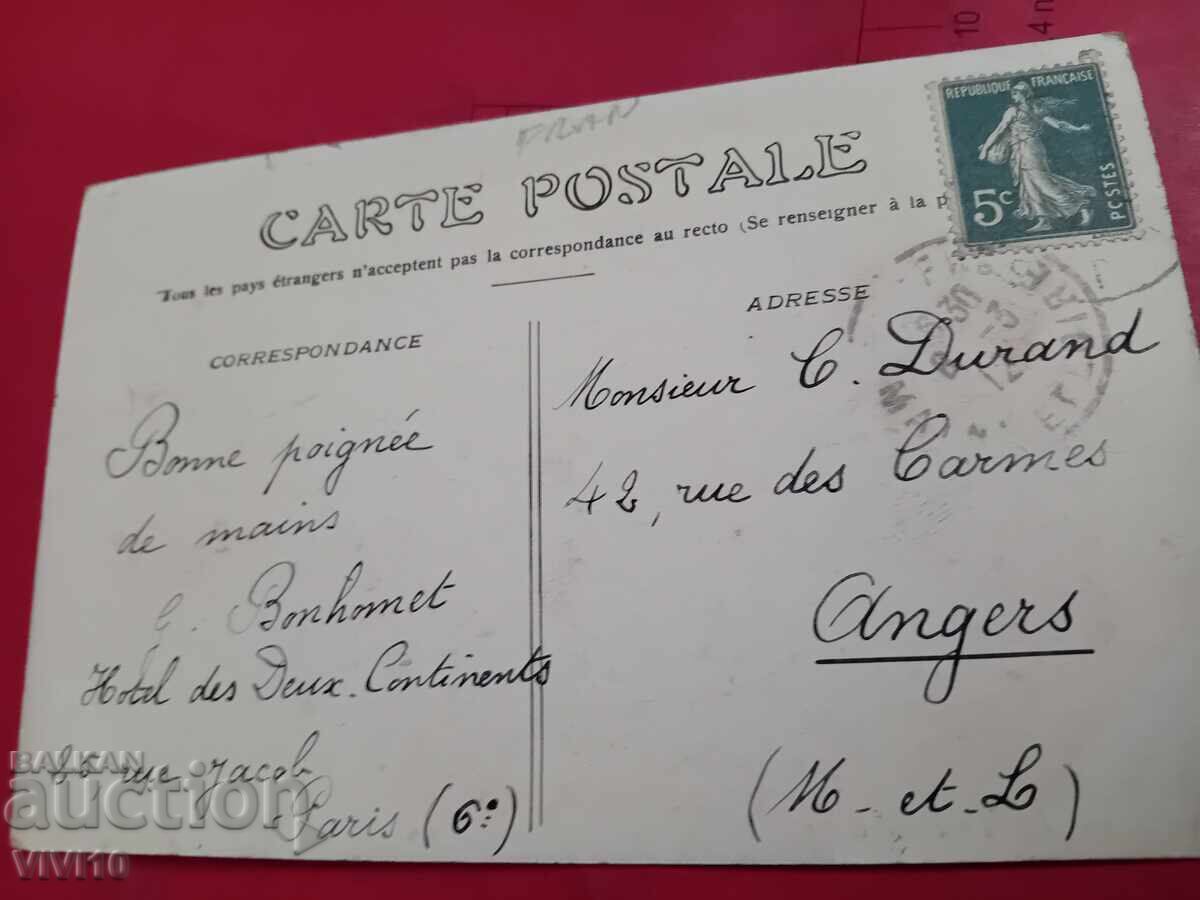 CARTE POSTALE
Tous les pays étrangers n'acceptent pas la correspondance au recto (Se renseigner à la p
REPUBLIQUE FRANÇAISE
5c
POSTES
CORRESPONDANCE
Bonne poignée
de mains
G. Bonhomet
Hotel des Deux-Continents
rue Jacob
Paris (6e)
ADRESSE
Monsieur C. Durand
42, rue des Carmes
Angers
(M-et-L)
10
BALKAN
auction
VIVI10